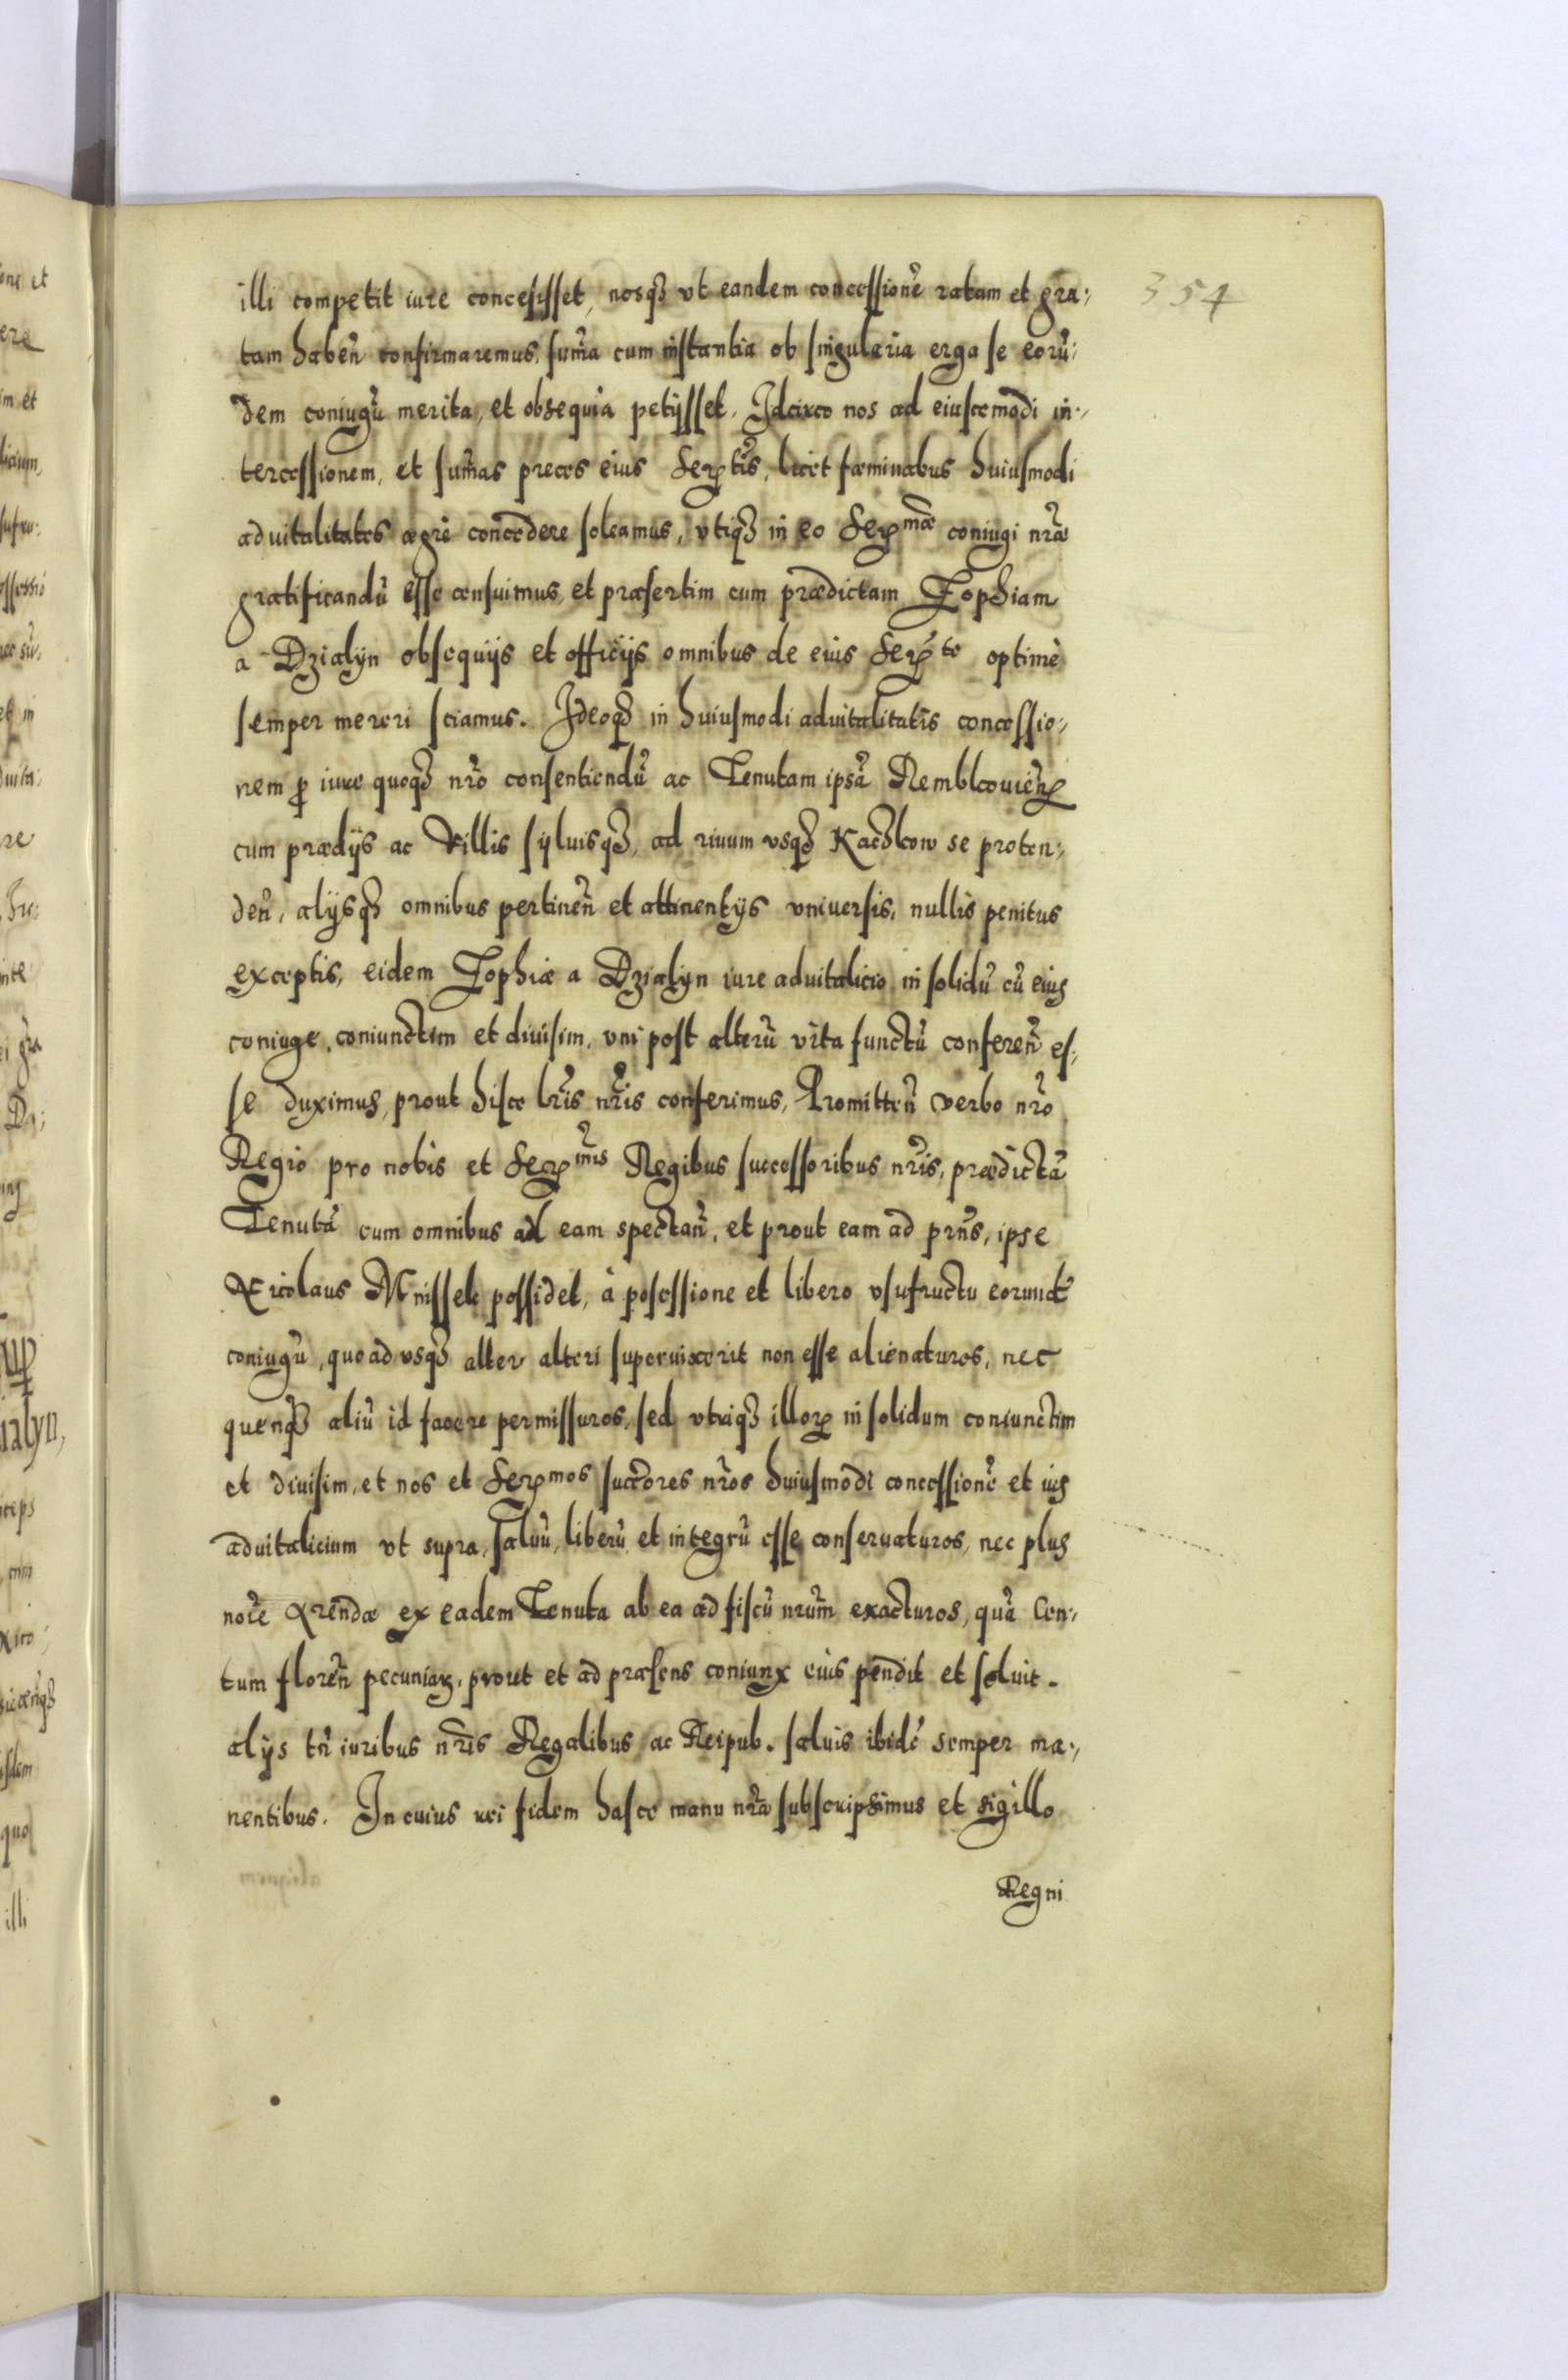 354
illi competit iure concessisset, nosq3 vt eandem concessionē ratam et gra,
tam habeñ confirmaremus, sum̃a cum instantia ob singularia erga se eorũ,
dem coniugũ merita, et obsequia petijsset. Idcirco nos ad eiuscemodi in,
tercessionem, et sum̃as preces eius Serꝝtis, licet fæminabus huiusmodi
aduitalitates ægrè concedere soleamus, vtiq3 in eo Serꝝmæ coniugi nr̃æ
gratificandũ esse censuimus, et præsertim cum prædictam Zophiam
a Dzialyn obsequijs et officijs omnibus de eius Serꝝte optimè
semper mereri sciamus. Ideoq3 in huiusmodi aduitalitatis concessio,
nem ꝓ iure quoq3 nr̃o consentiendũ ac Tenutam ipsã Remblcouieñ
cum prædijs ac villis syluisq3, ad riuum vsq3 Kachlow se proten,
deñ, alijsq3 omnibus pertineñ et attinentijs vniuersis, nullis penitus
exceptis, eidem Zophiæ a Dzialyn iure aduitalicio in solidũ cũ eius
coniuge, coniunctim et diuisim, vni post alterũ vita functũ confereñ es,
se duximus, prout hisce lr̃is nr̃is conferimus, Promitteñ verbo nr̃o
Regio pro nobis et Serꝝmis Regibus successoribus nr̃is, prædictã
Tenutã cum omnibus ad eam spectañ, et prout eam ad prñs, ipse
Nicolaus Mnissek possidet, à possessione et libero vsufructu eorundẽ
coniugũ, quoad vsq3 alter alteri superuixerit non esse alienaturos, nec
quenq3 aliũ id facere permissuros, sed vtriq3 illoꝝ in solidum coniunctim
et diuisim, et nos et Serꝝmos succẽores nr̃os huiusmodi concessionẽ et ius
aduitalicium vt supra, saluũ, liberũ et integrũ esse conseruaturos, nec plus
noĩe Arendæ ex eadem Tenuta ab ea ad fiscũ nr̃um exacturos, quã Cen,
tum floreñ pecuniaꝝ, prout et ad præsens coniunx eius pendit et soluit.
alijs tñ iuribus nr̃is Regalibus ac Reipub. saluis ibidẽ semper ma,
nentibus. In cuius rei fidem hasce manu nr̃a subscripsimus et sigillo
Regni